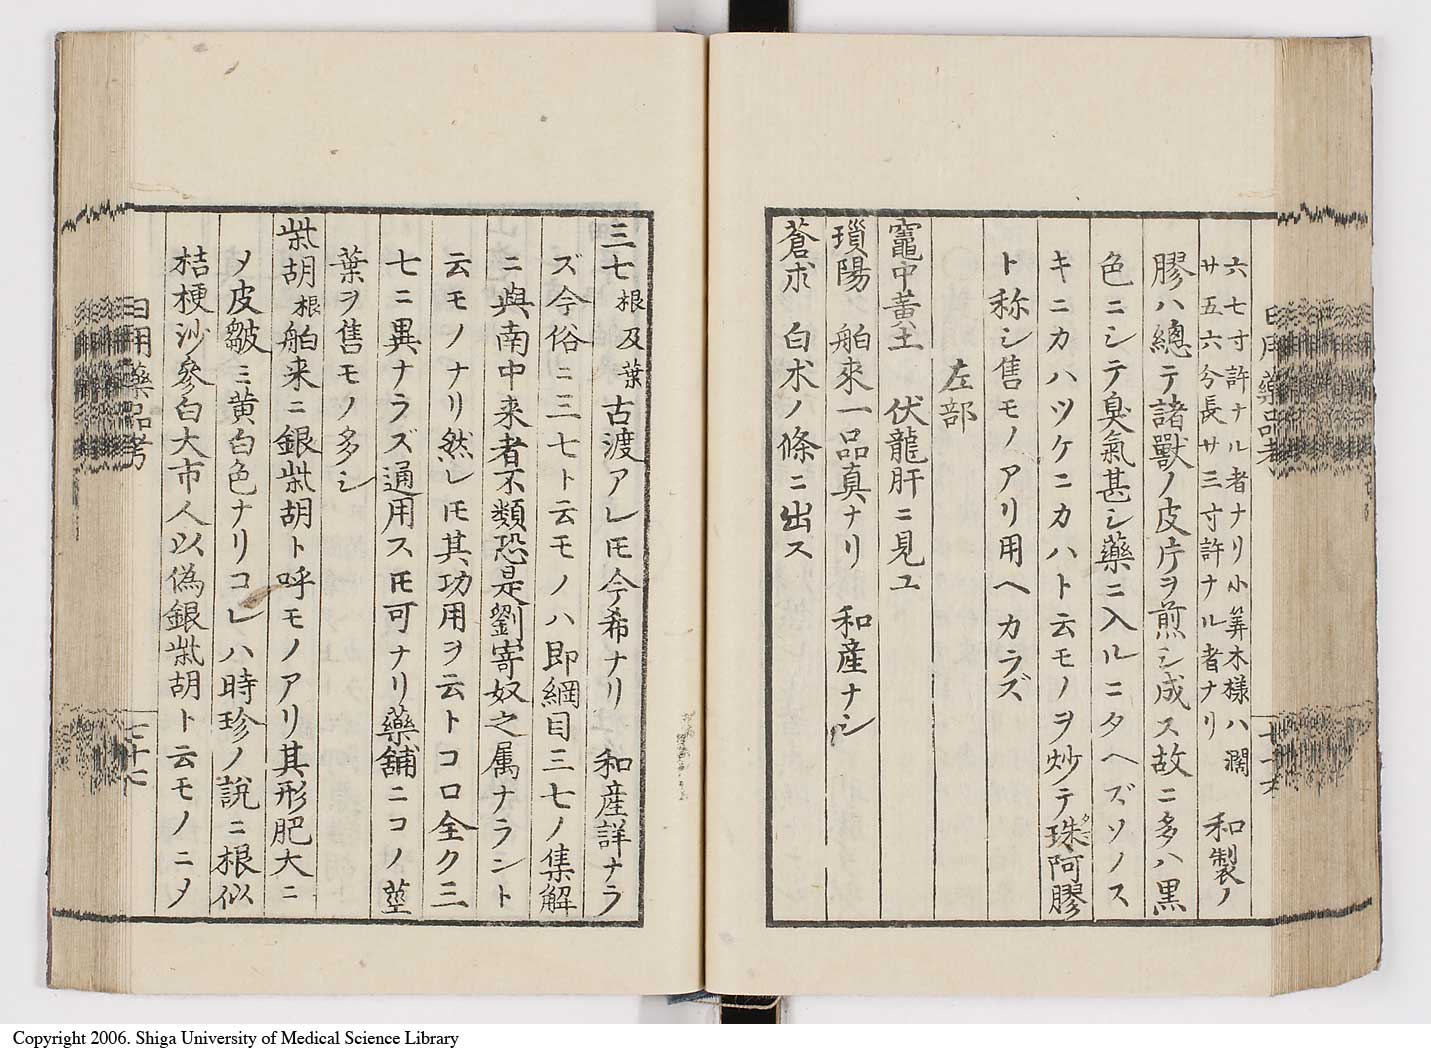 六七寸許ナル者ナリ小笄木様ハ濶
サ五六分長サ三寸許ナル者ナリ
和製ノ
膠ハ總テ諸獸ノ皮片ヲ煎シ成ス故ニ多ハ黒
色ニシテ臭氣甚シ藥ニ入ルニタヘズソノス
キニカハツケニカハト云モノヲ炒テ珠阿膠
ト称シ售モノアリ用ヘカラズ
左部
竈中黄土 伏龍肝ニ見ユ
瑣陽 舶來一品真ナリ 和産ナシ
蒼朮 白朮ノ條ニ出ス
三七根及葉 古渡アレ𪜈今希ナリ 和産詳ナラ
ズ今俗ニ三七ト云モノハ即綱目三七ノ集解
ニ與南中來者不類恐是劉寄奴之属ナラント
云モノナリ然レ𪜈其功用ヲ云トコロ全ク三
七ニ異ナラズ通用ス𪜈可ナリ藥舗ニコノ莖
葉ヲ售モノ多シ
柴胡根 舶来ニ銀柴胡ト呼モノアリ其形肥大ニ
〆皮皺ミ黄白色ナリコレハ時珍ノ説ニ根似
桔梗沙參白大市人以偽銀柴胡ト云モノニ〆
日用藥品考
七十七
Copyright 2006. Shiga University of Medical Science Library